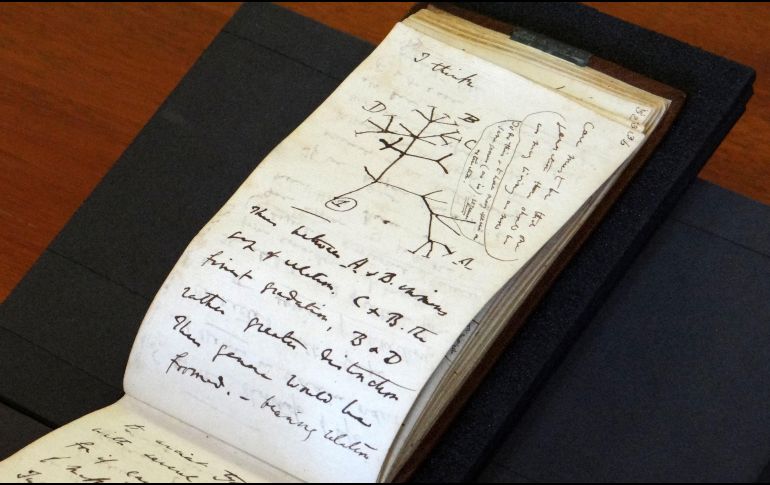 I think
D
B
C
A
1
Case must be that one
generation then should be
as many living as now
To do this & to have many species in
same genus (as is) requires
extinction
Thus between A. & B. immens
gap of relation. C & B. The
finest gradation, B & D
rather greater distinction
Thus genera would be
formed. — bearing relation
to ancient ty
with several
for if ea